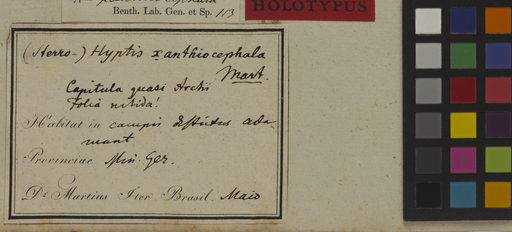 Benth. Lab. Gen. et Sp. 113
HOLOTYPUS
(Sterro-) Hyptis xanthiocephala
Mart.
Capitula quasi Arctii
Folia nitida!
Habitat in campis
Provinciae Min. Ger.
Dr. Martius Iter Brasil. Maio